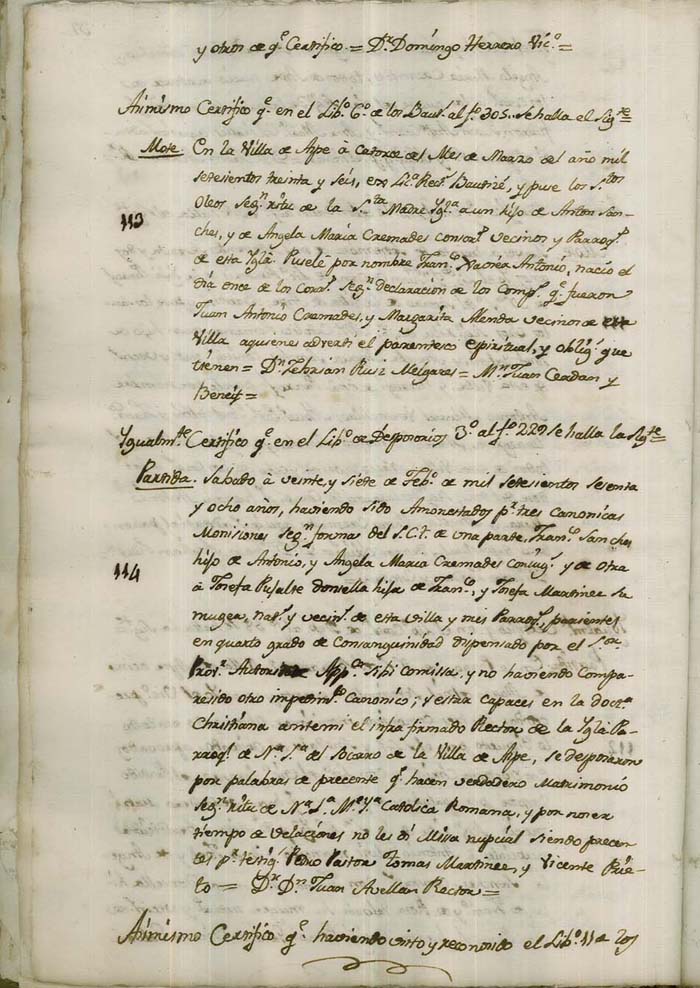 y otros de q.e Certifico = D.r Domingo Herrero Vic.o =
Asimismo Certifico q.e en el Lib.o 6.o de los Baut.s al f.o 305. se halla el Sig.te =
Mote. En la Villa de Aspe à Catorce del Mes de Marzo del año mil
setesientos treinta y séis, en Lic.a Rect.l Bautizé, y puse los S.tos
Oleos, seg.n ritu de la S.ta Madre Ygl.a a un hijo de Anton San-
113
ches, y de Angela Maria Cremades consort.s vecinos y Parroq.s
de esta Ygl.a Puselé por nombre Fran.co Xavier Antonio, nació el
dia once de los Corr.s seg.n declaración de los Comp.s q.e fueron
Juan Antonio Cremades, y Margarita Alenda vecinos de esta
Villa aquienes adverti el parentesco espiritual, y oblig.n que
tienen = D.n Zebrian Ruiz Melgares = M.n Juan Cerdan y
Beneit =
Ygualm.te Certifico q.e en el Lib.o de Desposorios 3.o al f.o 229 se halla la Sig.te =
Partida. Sabado à veinte, y siete de Feb.o de mil setesientos sesenta
y ocho años, haviendo sido Amonestados p.r tres canonicas
Monisiones seg.n forma del S.C.T. de una parte, Fran.co Sanches
hijo de Antonio, y Angela Maria Cremades conyug.s y de otra
114
à Josefa Pujalte donsella hija de Fran.co, y Josefa Martinez su
muger, nat.s y vecin.s de esta villa y mis Parroq.s, parientes
en quarto grado de Consanguinidad dispensado por el S.or
Prov.r Autoritate App.ca sibi comissa, y no haviendo Compa-
resido otro impedim.to Canonico; y estar capaces en la doct.a
Christiana antemi el infra firmado Rector de la Ygl.a Pa-
rroq.l de N.a S.a del Socorro de la Villa de Aspe, se desposaron
por palabras de precente q.e hacen verdadero Matrimonio
Seg.n ritu de N.a S.a M.e Y.a Catolica Romana, y por no ser
tiempo de velaciones no les di Missa nupcial siendo precen
tes p.r testig.s Pedro Pastor Tomas Martinez, y Vicente Rué-
lo = D.r D.n Juan Avellan Rector =
Asimismo Certifico q.e haviendo visto y reconosido el Lib.o 11 de los